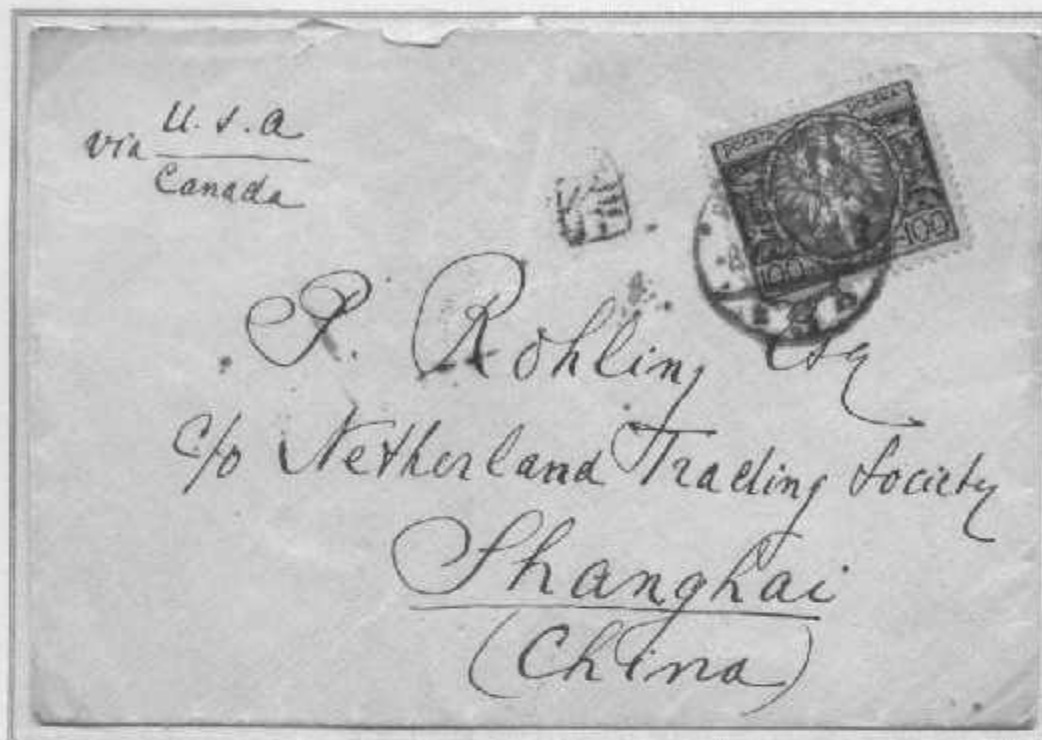 via U.S.A
Canada
POCZTA POLSKA
100 100
P. Rohling Esq
c/o Netherland Trading Society
Shanghai
(China)